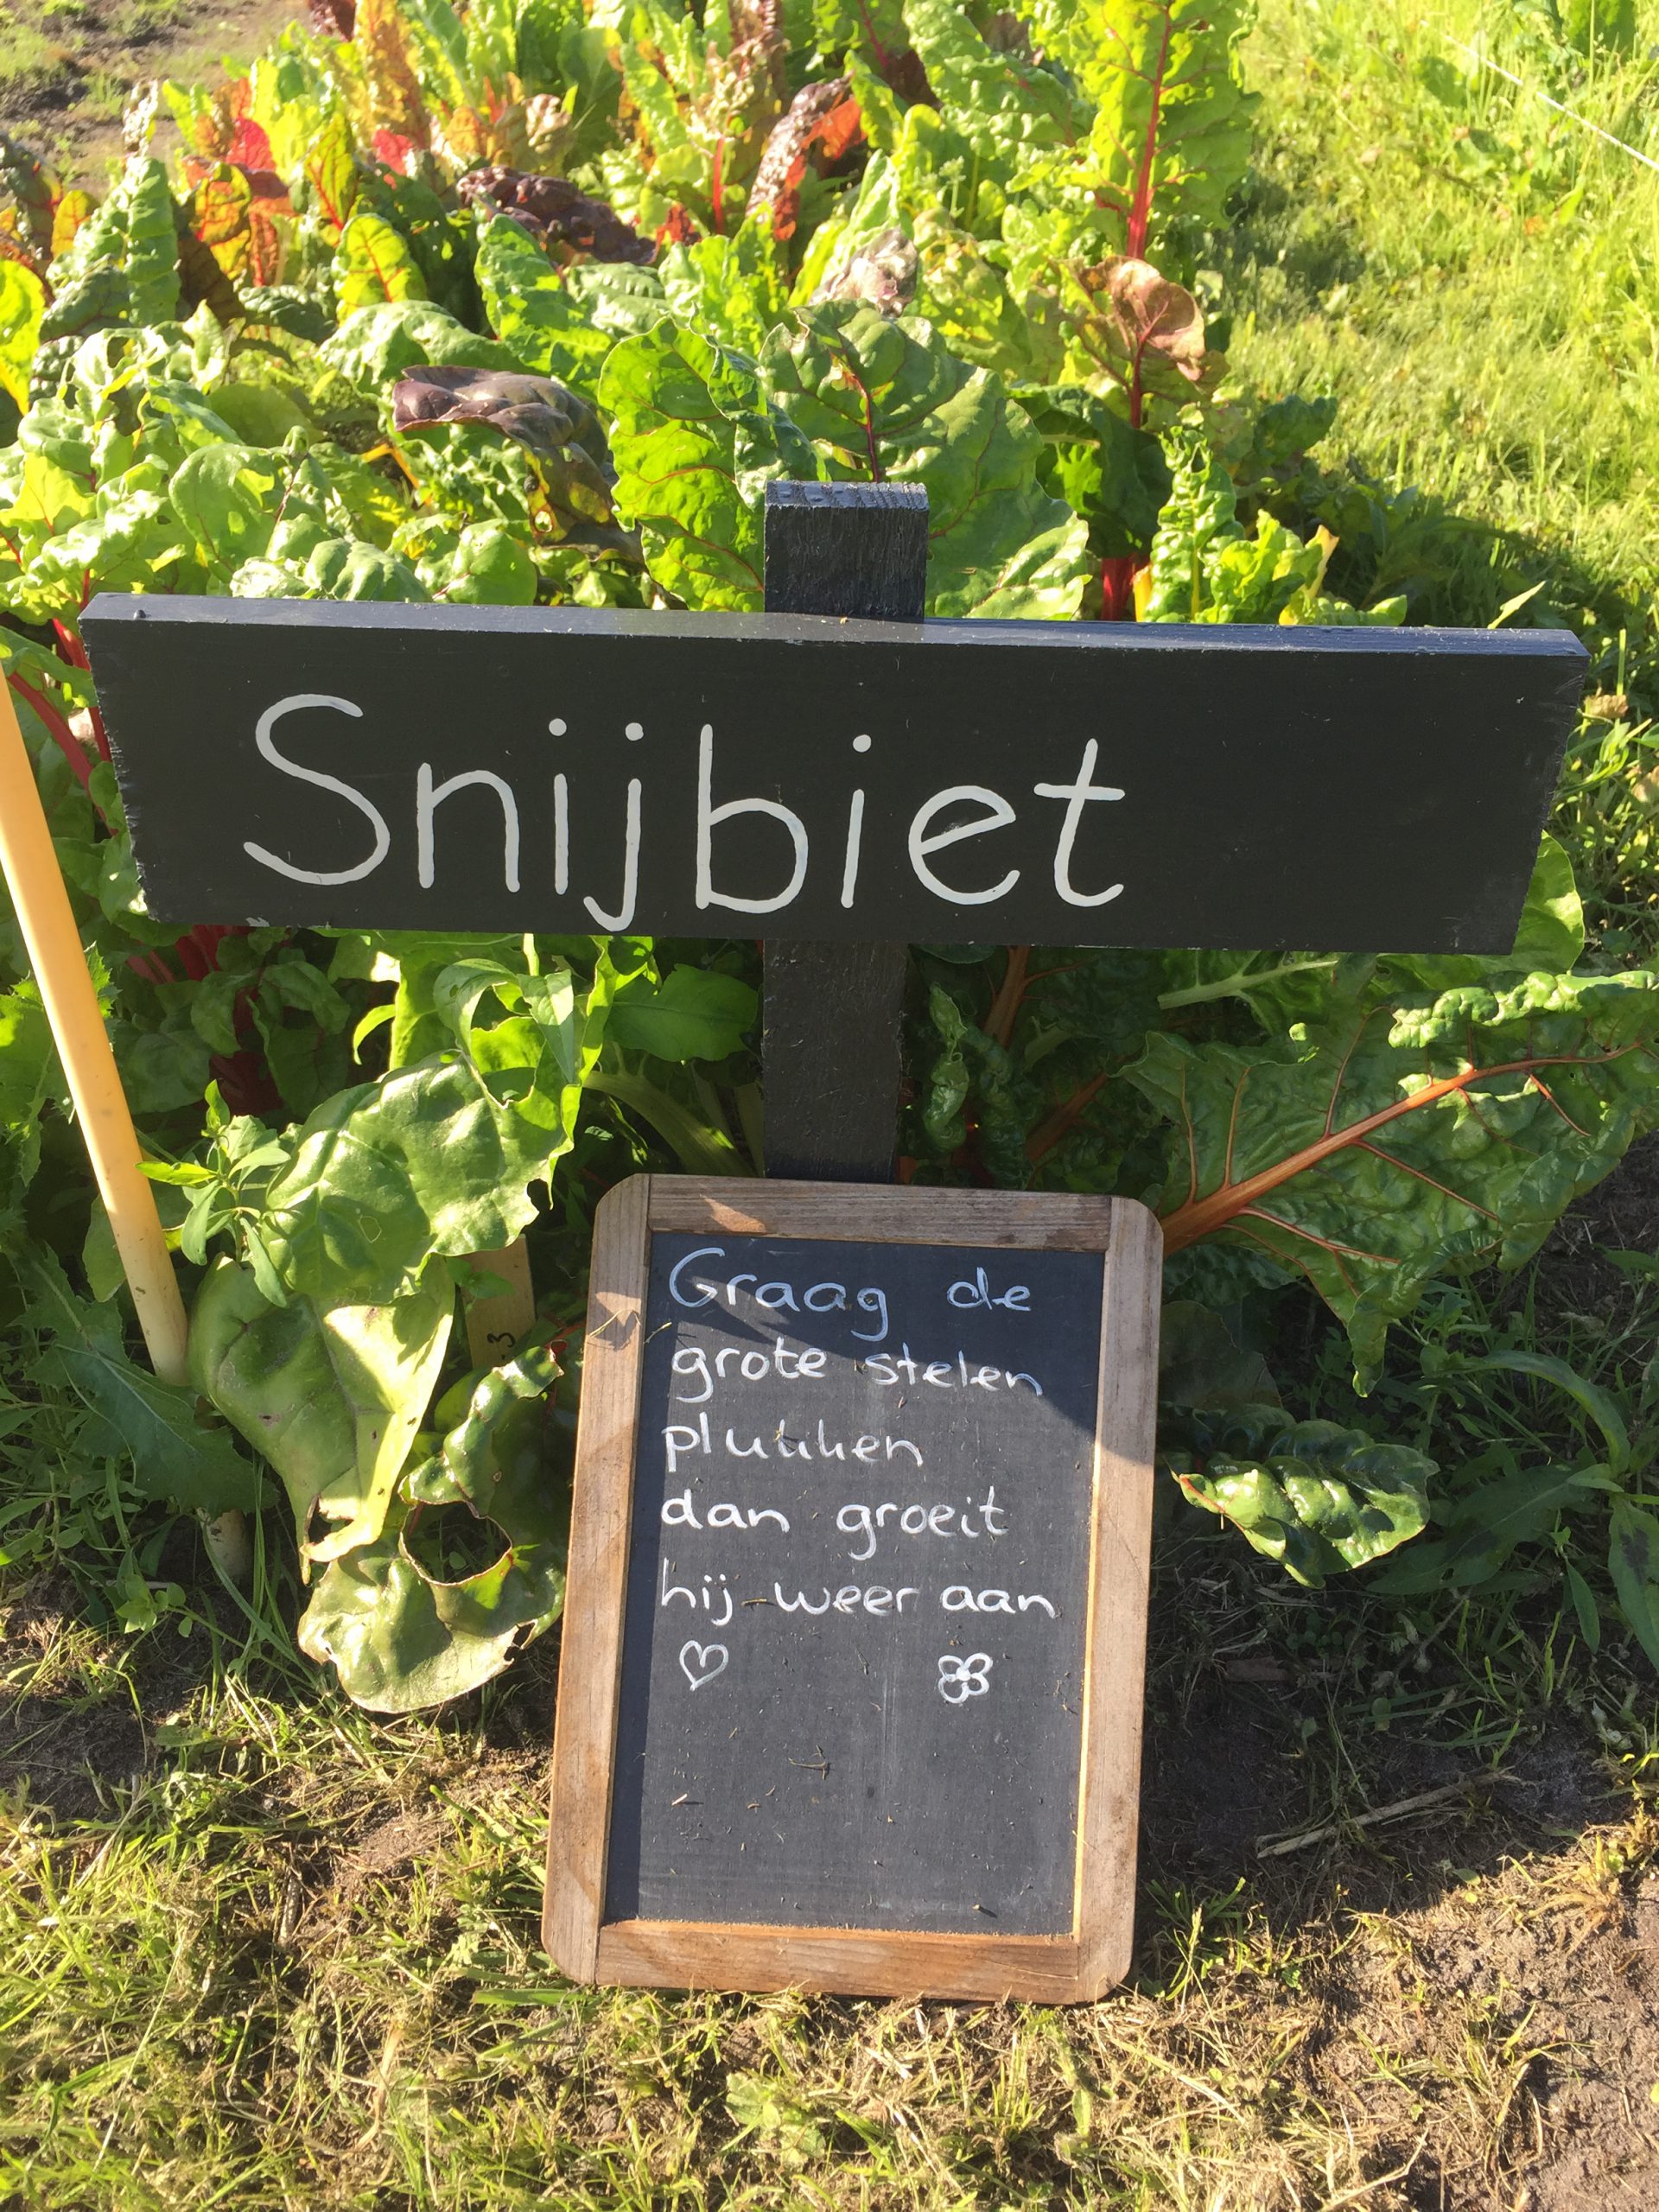 Snijbiet
Graag de
grote stelen
plukken
dan groeit
hij weer aan
3